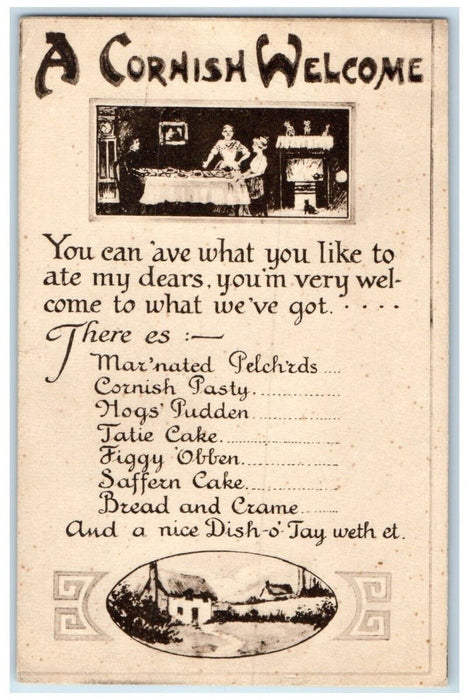 A Cornish Welcome
You can 'ave what you like to
ate my dears, you'm very wel-
come to what we've got. . . . .
There es :—
Mar'nated Pelch'rds ....
Cornish Pasty....................
Hogs' Pudden....................
Tatie Cake..........................
Figgy 'Obben.....................
Saffern Cake.....................
Bread and Crame..........
And a nice Dish-o'-Tay weth et.